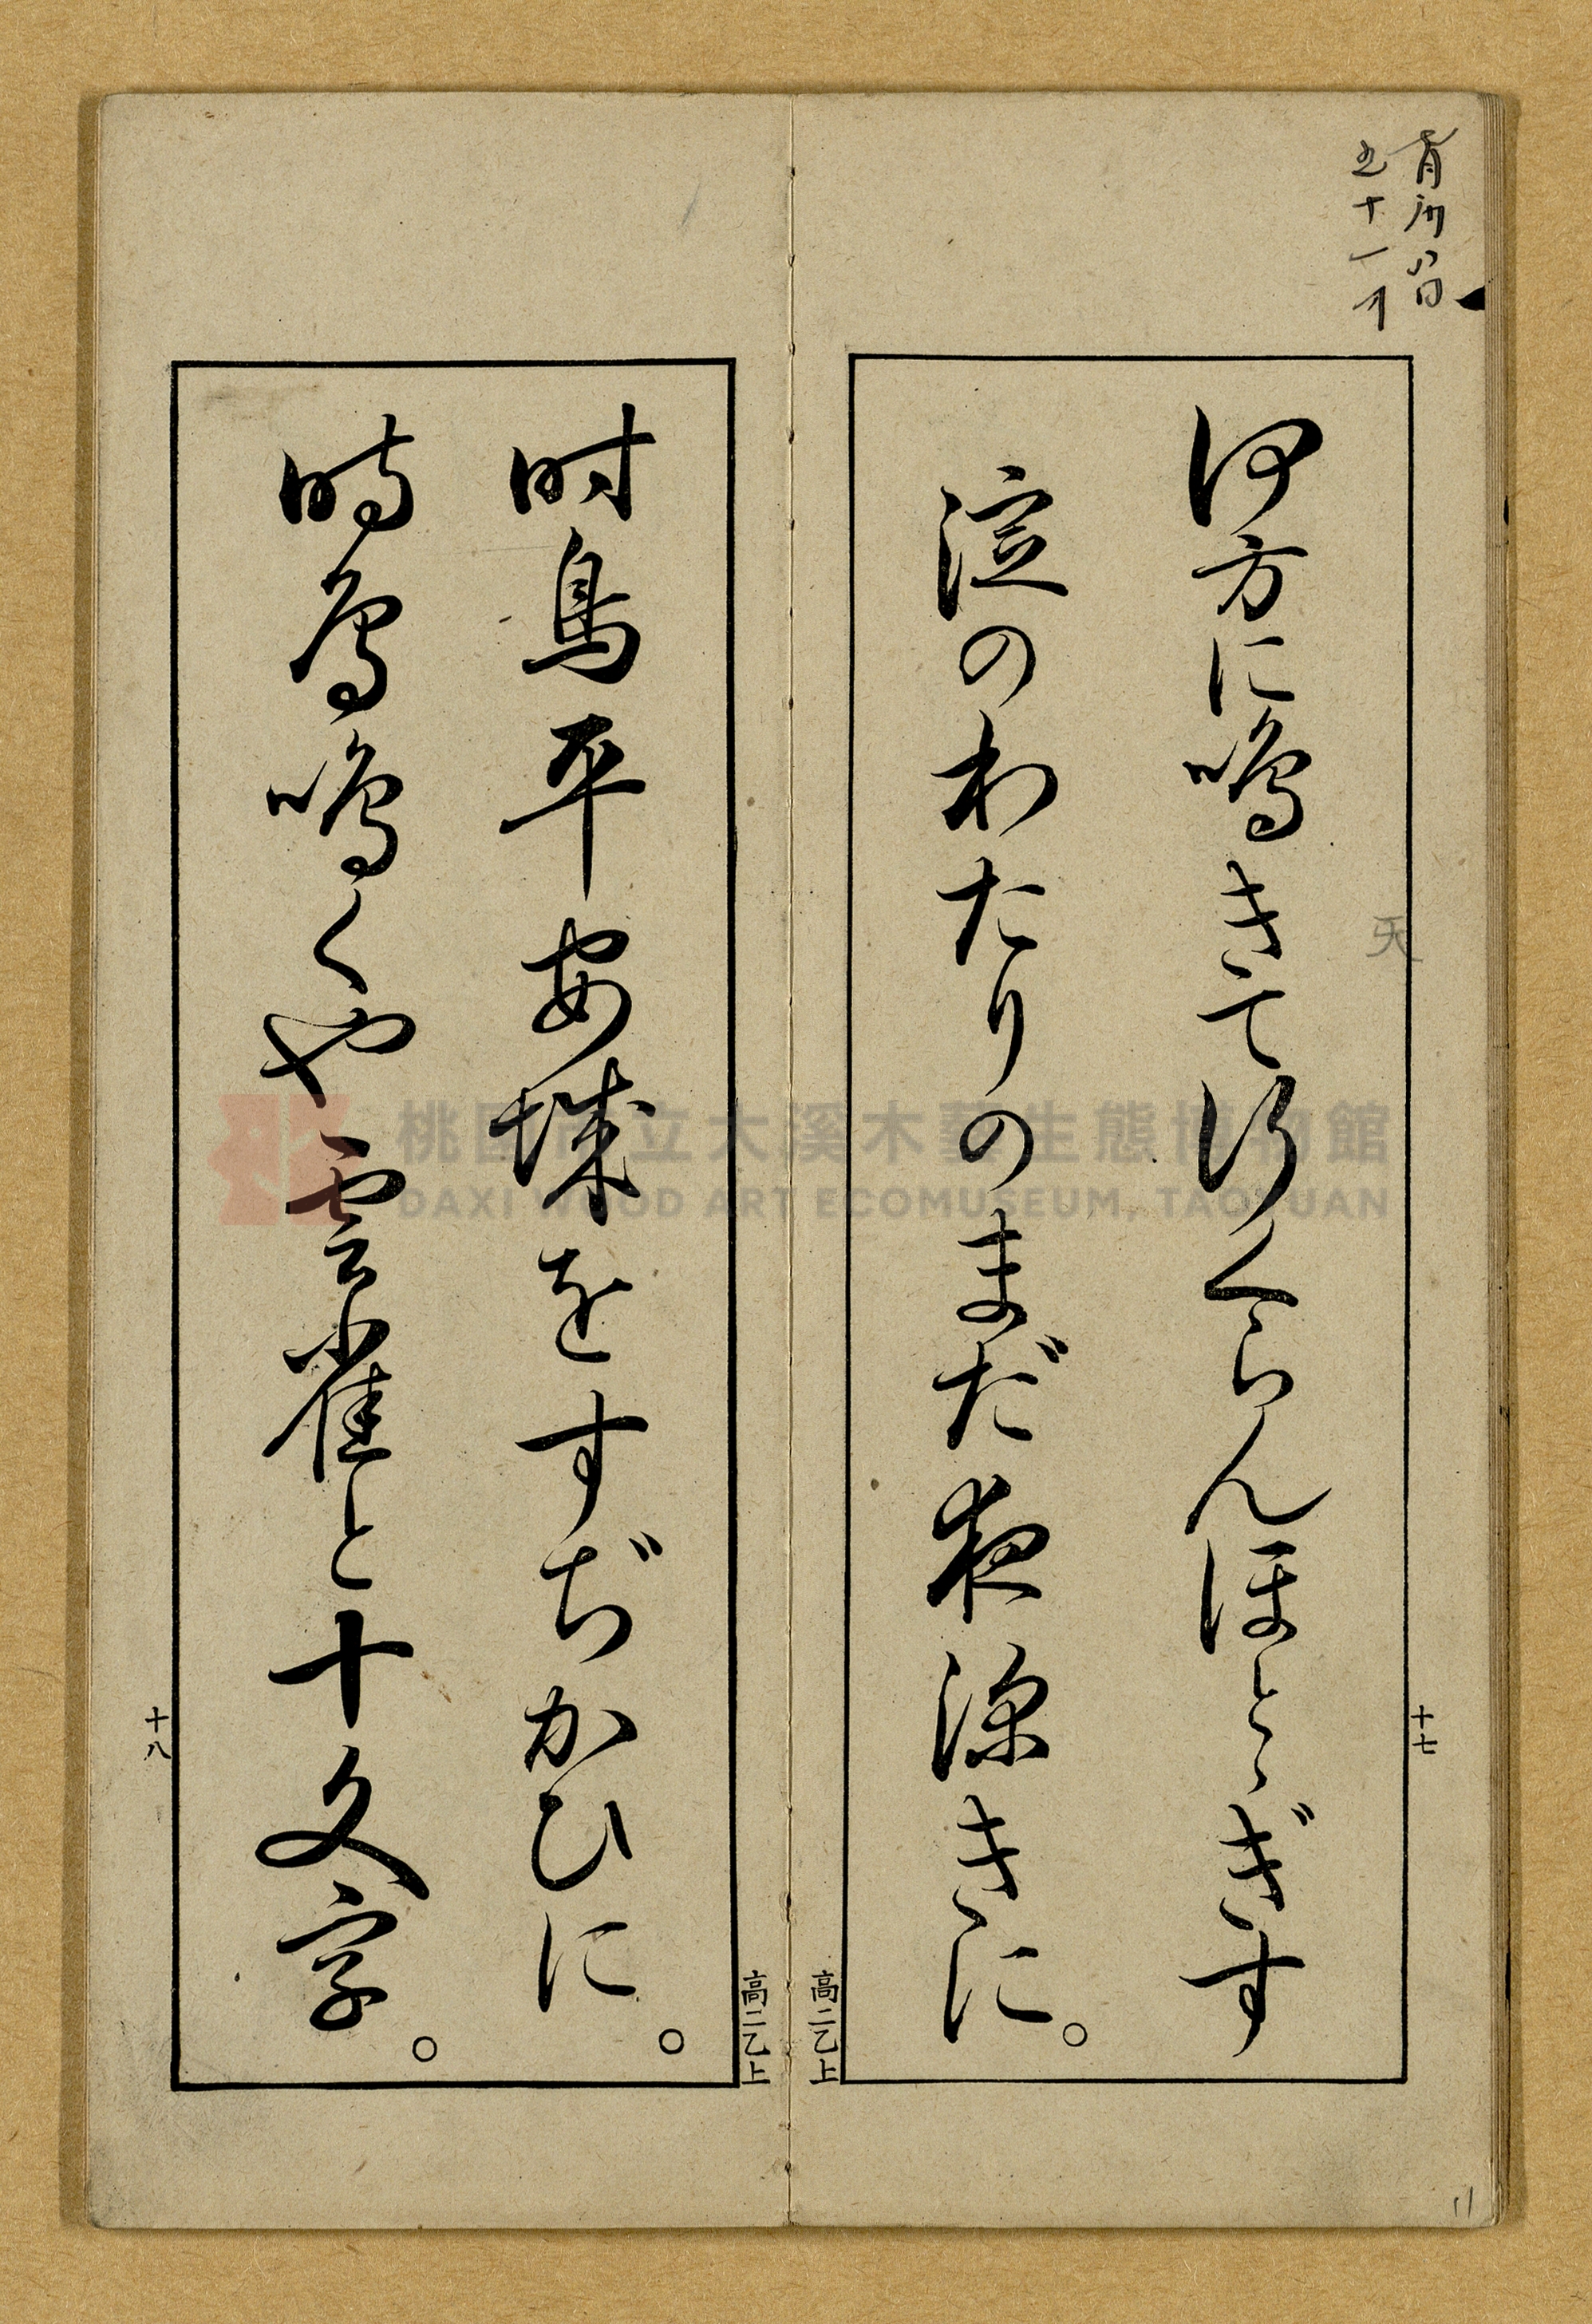 何方に鳴きて行くらんほとゝぎす
淀のわたりのまだ夜深きに。
十七
高二乙上
時鳥平安城をすぢかひに。
時鳥鳴くや雲雀と十文字。
十八
高二乙上
天
11
桃園市立大溪木藝生態博物館
DAXI WOOD ART ECOMUSEUM, TAOYUAN